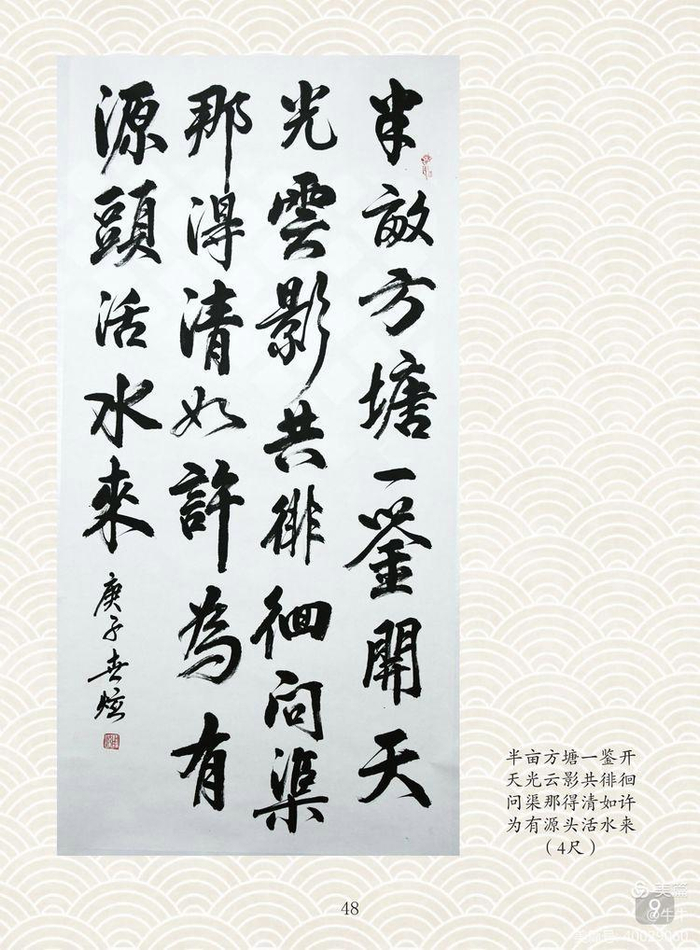 半畝方塘一鉴開天
光雲影共徘徊问渠
那得清如許為有
源頭活水來
庚子春炫
半亩方塘一鉴开
天光云影共徘徊
问渠那得清如许
为有源头活水来
(4尺)
48
美篇
@牛牛